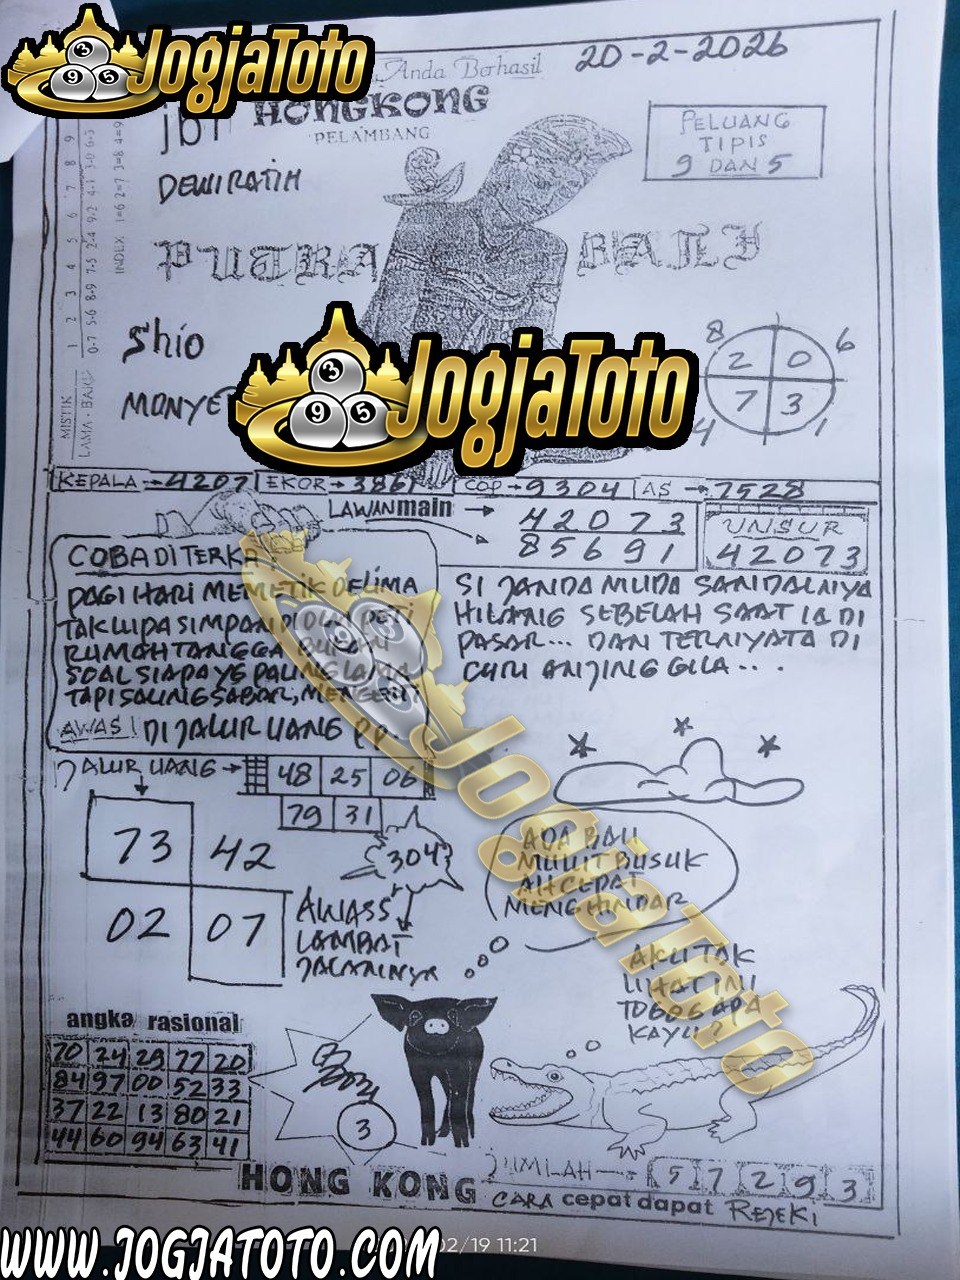 JogjaToto
Anda Berhasil
20-2-2026
HONGKONG
PELAMBANG
DEWIRATIH
PELUANG
TIPIS
9 DAN 5
PUTRA BALI
1 2 3 4 5 6 7 8 9
0-7 5-6 8-9 7-5 2-4 9-2 4-1 3-0 6-3
INDEX 1=6 2=7 3=8 4=9
MISTIK
LAMA - BARU
Shio
MONYE
JogjaToto
8 6
2 0
7 3
4 1
KEPALA → 4207 EKOR → 3861 COP → 9304 AS → 7528
LAWAN main → 42073
85691
UNSUR
42073
COBA DITERKA
PAGI HARI MEMETIK DELIMA
TAK LUPA SIMPAN DI DLM PETI
RUMAH TANGGA BUKAN
SOAL SIAPA YG PALING LAMA
TAPI SALING SABAR, MENGERTI
AWAS! DI JALUR UANG PP.
SI JANDA MUDA SANDALNYA
HILANG SEBELAH SAAT IA DI
PASAR... DAN TERNYATA DI
CURI ANJING GILA...
JALUR UANG → 48 25 06
79 31
73 42
02 07
304
AWASS
LAMBAT
JALANNYA
ADA BAU
MULUT BUSUK
AH CEPAT
MENGHINDAR
AKU TAK
LIHAT INI
TOBOS APA
KAYU?
JogjaToto
angka rasional
70 24 29 77 20
84 97 00 52 33
37 22 13 80 21
44 60 94 63 41
3
JUMLAH → 5 7 2 9 3
HONG KONG CARA cepat dapat REJEKI
02/19 11:21
WWW.JOGJATOTO.COM